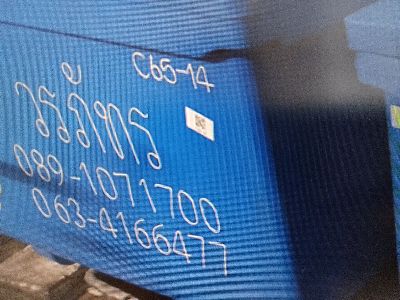 C65-14
วรภัทร
089-1071700
063-4166477